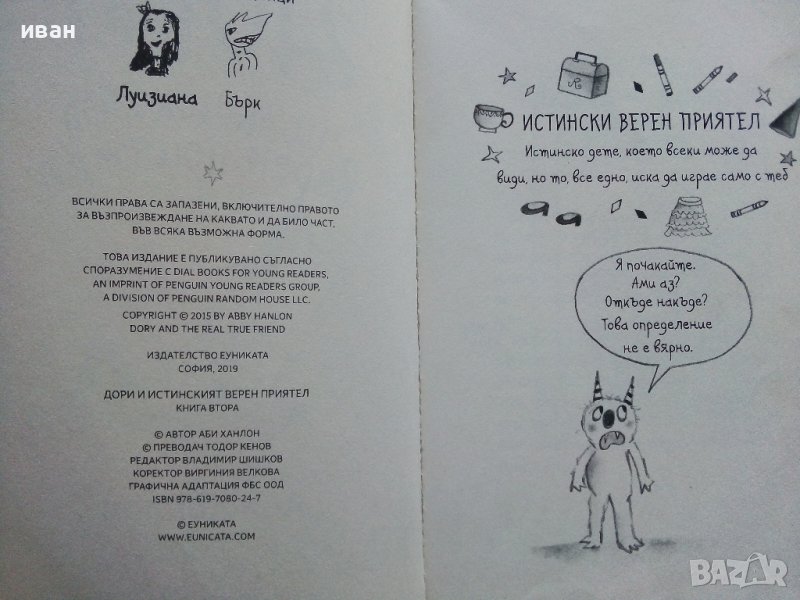 иван
Луизиана
Бърк
ВСИЧКИ ПРАВА СА ЗАПАЗЕНИ, ВКЛЮЧИТЕЛНО ПРАВОТО
ЗА ВЪЗПРОИЗВЕЖДАНЕ НА КАКВАТО И ДА БИЛО ЧАСТ,
ВЪВ ВСЯКА ВЪЗМОЖНА ФОРМА.
ТОВА ИЗДАНИЕ Е ПУБЛИКУВАНО СЪГЛАСНО
СПОРАЗУМЕНИЕ С DIAL BOOKS FOR YOUNG READERS,
AN IMPRINT OF PENGUIN YOUNG READERS GROUP,
A DIVISION OF PENGUIN RANDOM HOUSE LLC.
COPYRIGHT © 2015 BY ABBY HANLON
DORY AND THE REAL TRUE FRIEND
ИЗДАТЕЛСТВО ЕУНИКАТА
СОФИЯ, 2019
ДОРИ И ИСТИНСКИЯТ ВЕРЕН ПРИЯТЕЛ
КНИГА ВТОРА
© АВТОР АБИ ХАНЛОН
© ПРЕВОДАЧ ТОДОР КЕНОВ
РЕДАКТОР ВЛАДИМИР ШИШКОВ
КОРЕКТОР ВИРГИНИЯ ВЕЛКОВА
ГРАФИЧНА АДАПТАЦИЯ ФБС ООД
ISBN 978-619-7080-24-7
© ЕУНИКАТА
WWW.EUNICATA.COM
ИСТИНСКИ ВЕРЕН ПРИЯТЕЛ
Истинско дете, което всеки може да
види, но то, все едно, иска да играе само с теб
Я почакайте.
Ами аз?
Откъде накъде?
Това определение
не е вярно.
BAZAR